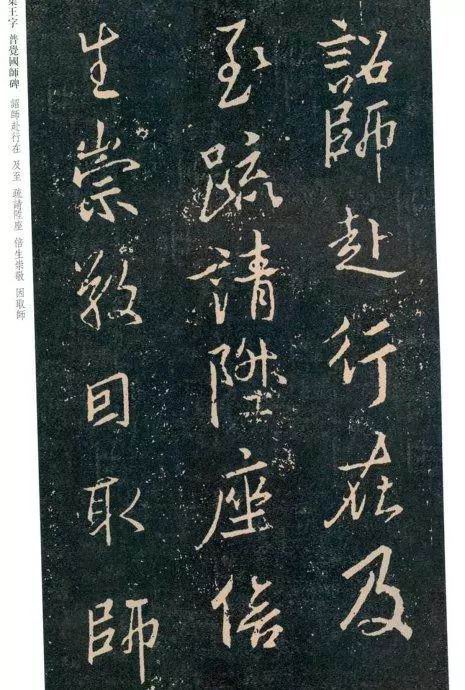 詔師赴行在及
至疏請陞座倍
生崇敬因取師
集王字 普覺國師碑
詔師赴行在 及至 疏請陞座 倍生崇敬 因取師